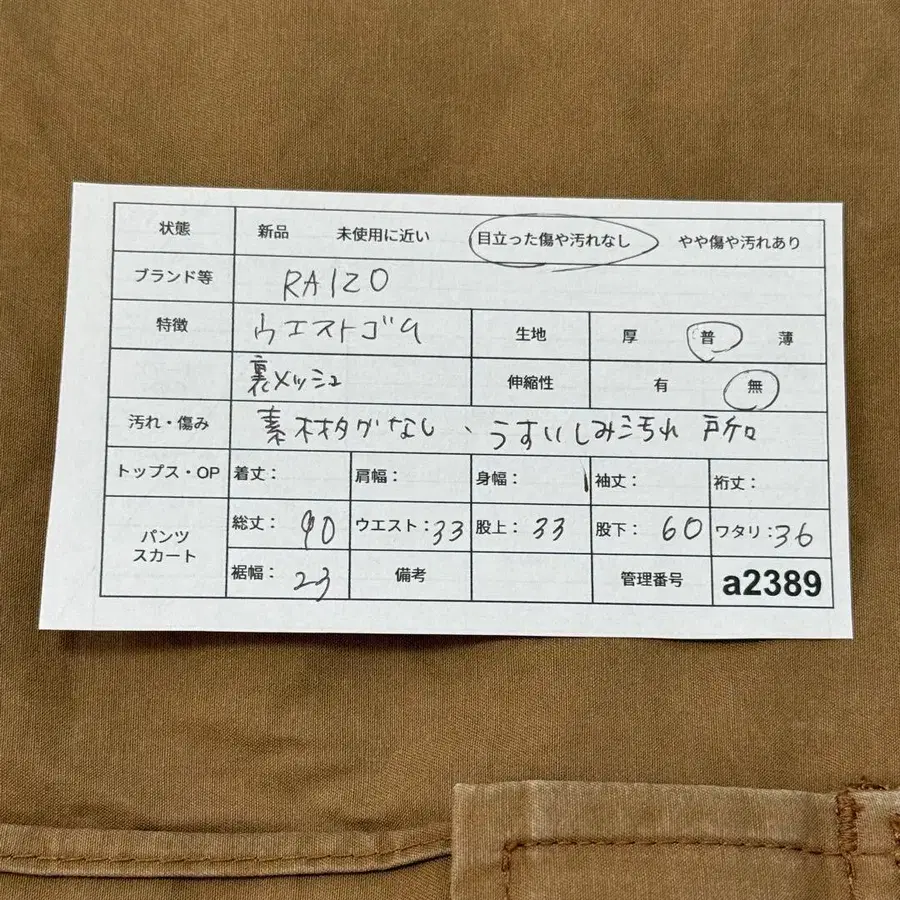 状態 新品 未使用に近い 目立った傷や汚れなし やや傷や汚れあり
ブランド等 RAIZO
特徴 ウエストゴム 生地 厚 普 薄
裏メッシュ 伸縮性 有 無
汚れ・傷み 素材タグなし、うすいしみ汚れ
トップス・OP 着丈： 肩幅： 身幅： 袖丈： 裄丈：
パンツ スカート 総丈： 90 ウエスト：33 股上： 33 股下： 60 ワタリ：36
裾幅： 23 備考 管理番号 a2389